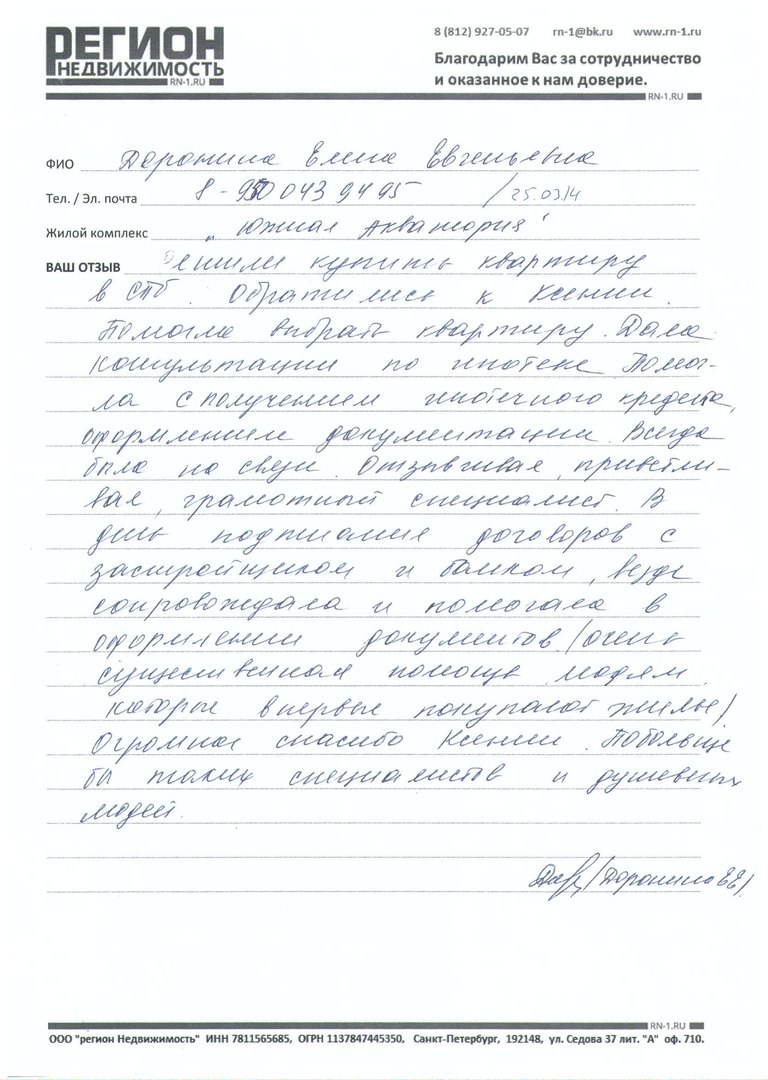 РЕГИОН
НЕДВИЖИМОСТЬ
RN-1.RU
8 (812) 927-05-07 rn-1@bk.ru www.rn-1.ru
Благодарим Вас за сотрудничество
и оказанное к нам доверие.
RN-1.RU
ФИО Доронина Елена Евгеньевна
Тел. / Эл. почта 8-950 043 9495 / 25.03.14
Жилой комплекс „Южная Акватория"
ВАШ ОТЗЫВ Решили купить квартиру
в СПб. Обратились к Ксении.
Помогла выбрать квартиру. Дала
консультации по ипотеке. Помог-
ла с получением ипотечного кредита,
оформлением документации. Всегда
была на связи. Отзывчивая, приветли-
вая, грамотный специалист. В
день подписания договоров с
застройщиком и банком, везде
сопровождала и помогала в
оформлении документов /очень
существенная помощь людям,
которые впервые покупают жилье/
Огромное спасибо Ксении. Побольше
бы таких специалистов и душевных
людей.
/Доронина ЕЕ/
RN-1.RU
ООО "регион Недвижимость" ИНН 7811565685, ОГРН 1137847445350, Санкт-Петербург, 192148, ул. Седова 37 лит. "А" оф. 710.